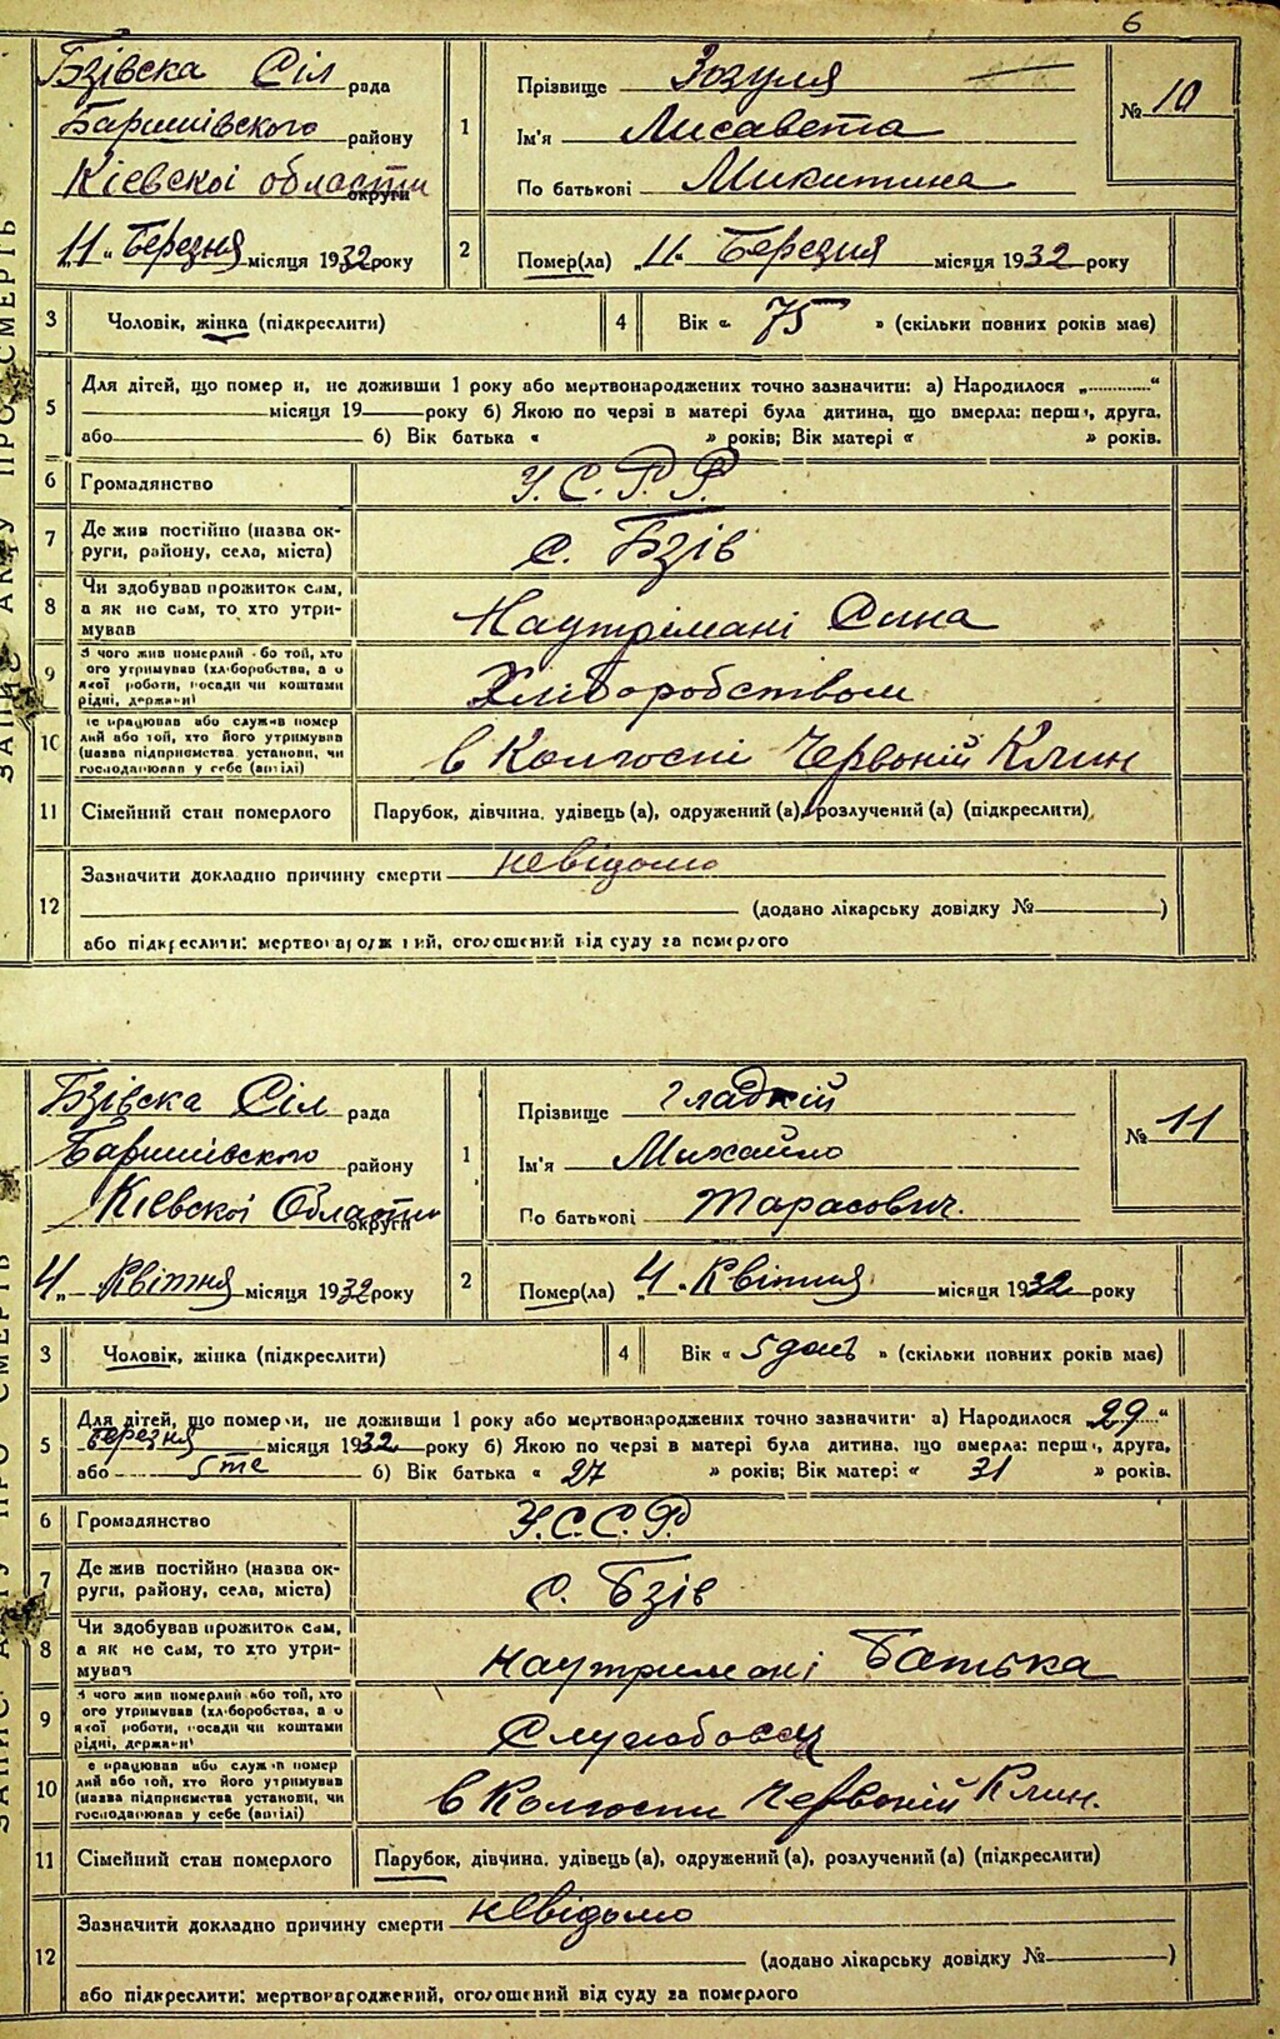 6
Бзівска Сіл рада
Баришівского району
Кіевскоі области округи
„11" Березня місяця 1932 року
1
Прізвище Зозуля
Ім'я Лисавета
По батькові Микитина
№ 10
2
Помер(ла) „11" Березня місяця 1932 року
3 Чоловік, жінка (підкреслити)
4 Вік « 75 » (скільки повних років має)
5
Для дітей, що помер и, не доживши 1 року або мертвонароджених точно зазначити: а) Народилося „ “
місяця 19 року б) Якою по черзі в матері була дитина, що вмерла: перша, друга,
або б) Вік батька « » років; Вік матері « » років.
6 Громадянство У.С.Р.Р.
7 Де жив постійно (назва ок-
руги, району, села, міста)
с. Бзів
8 Чи здобував прожиток сам,
а як не сам, то хто утри-
мував
Наутрімані Сина
9 З чого жив померлий або той, хто
ого утримував (хліборобства, а о
якої роботи, посади чи коштами
рідні, держави)
Хліборобством
10 е працював або служив помер
лий або той, хто його утримував
(назва підприємства установи, чи
господарював у себе (артілі)
в Колгоспі Червоній Клин
11 Сімейний стан померлого Парубок, дівчина, удівець (а), одружений (а), розлучений (а) (підкреслити)
12
Зазначити докладно причину смерти невідомо
(додано лікарську довідку № )
або підкреслити: мертвонароджений, оголошений від суду за померлого
ЗАПИС АКТУ ПРО СМЕРТЬ
Бзівска Сіл рада
Баришівского району
Кіевскоі Области округи
4„ Квітня місяця 1932 року
1
Прізвище Гладкій
Ім'я Михайло
По батькові Тарасович.
№ 11
2
Помер(ла) „4" Квітня місяця 1932 року
3 Чоловік, жінка (підкреслити)
4 Вік « 5 днів » (скільки повних років має)
5
Для дітей, що помер и, не доживши 1 року або мертвонароджених точно зазначити: а) Народилося „29“
Березня місяця 1932 року б) Якою по черзі в матері була дитина, що вмерла: перша, друга,
або 5те б) Вік батька « 27 » років; Вік матері « 31 » років.
6 Громадянство У.С.С.Р.
7 Де жив постійно (назва ок-
руги, району, села, міста)
с. Бзів
8 Чи здобував прожиток сам,
а як не сам, то хто утри-
мував
Наутримані Батька
9 З чого жив померлий або той, хто
ого утримував (хліборобства, а о
якої роботи, посади чи коштами
рідні, держави)
10 е працював або служив помер
лий або той, хто його утримував
(назва підприємства установи, чи
господарював у себе (артілі)
в Колгоспи Червоній Клин.
11 Сімейний стан померлого Парубок, дівчина, удівець (а), одружений (а), розлучений (а) (підкреслити)
12
Зазначити докладно причину смерти невідомо
(додано лікарську довідку № )
або підкреслити: мертвонароджений, оголошений від суду за померлого
ЗАПИС АКТУ ПРО СМЕРТЬ